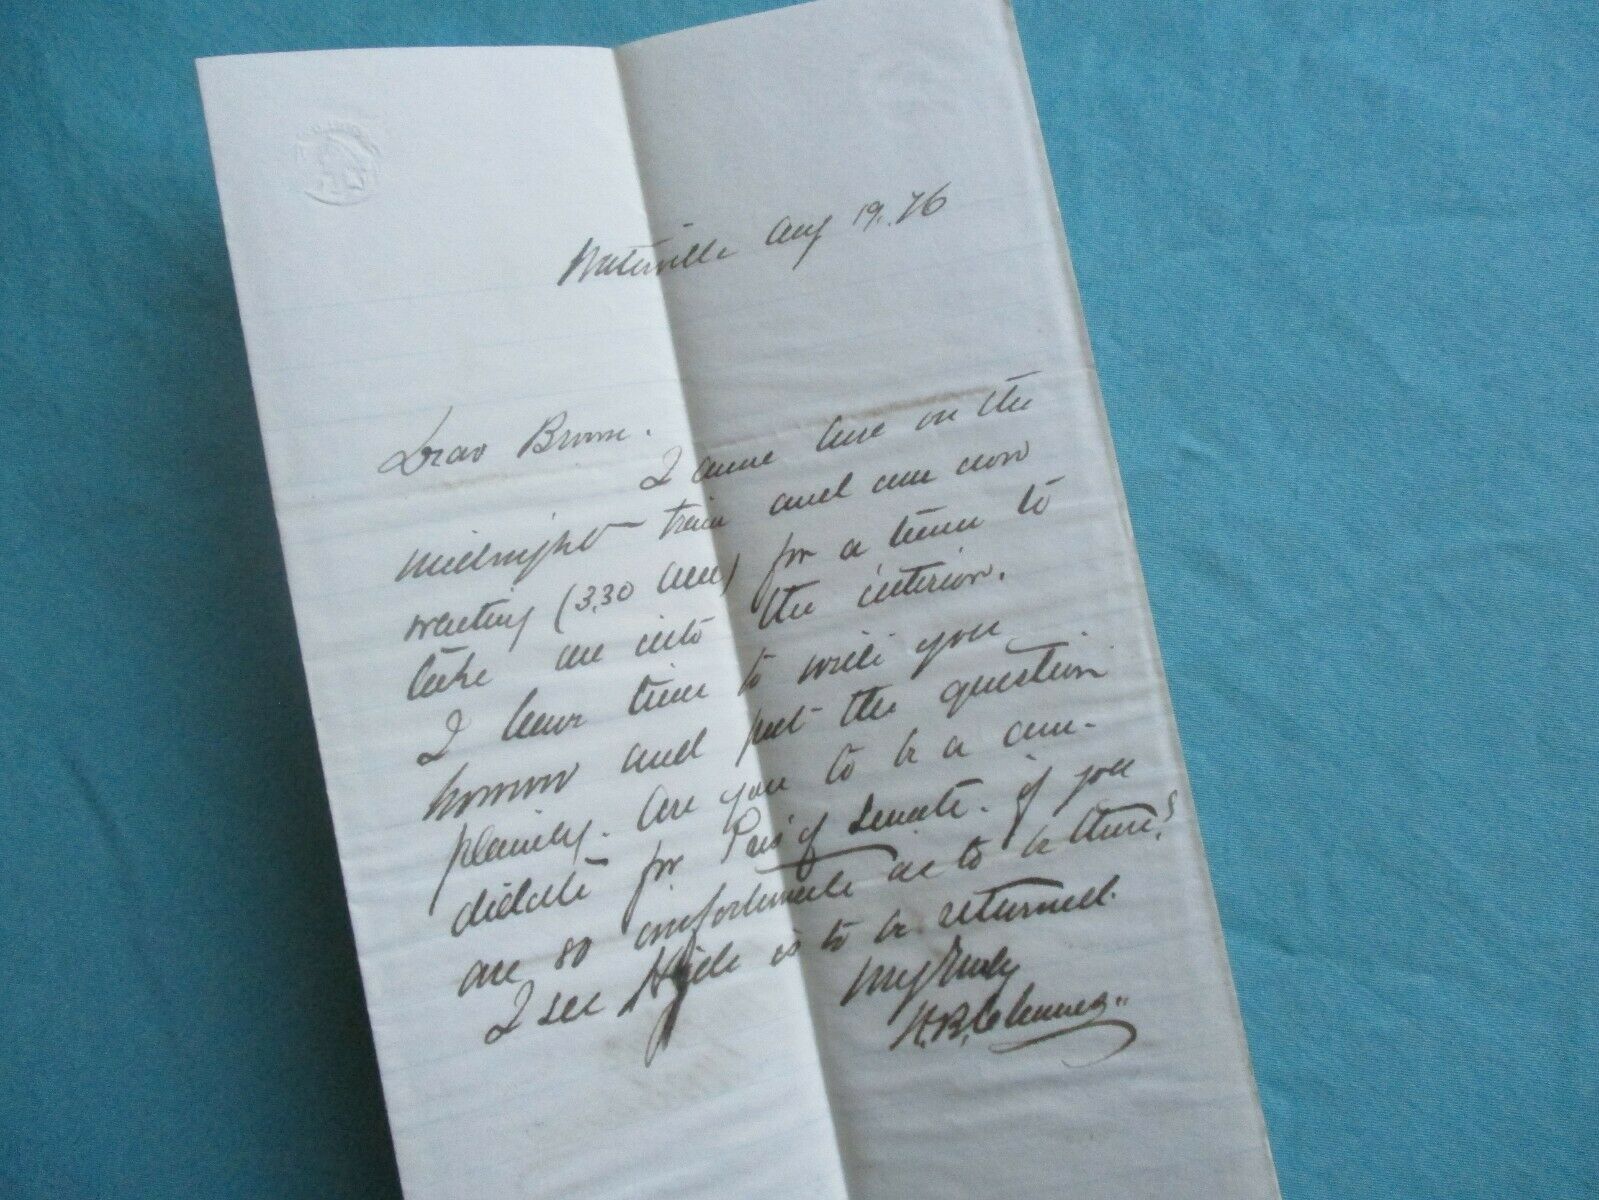 Waterville Aug 19. 76
Dear Brown.
I came here on the
midnight train and am now
waiting (3.30 am) for a train to
take me into the interior.
I have time to write you
however and put the question
plainly. Are you to be a can-
didate for Pres' of Senate. if you
are so unfortunate as to be there?
I see Hyde is to be returned.
truly
H.B.